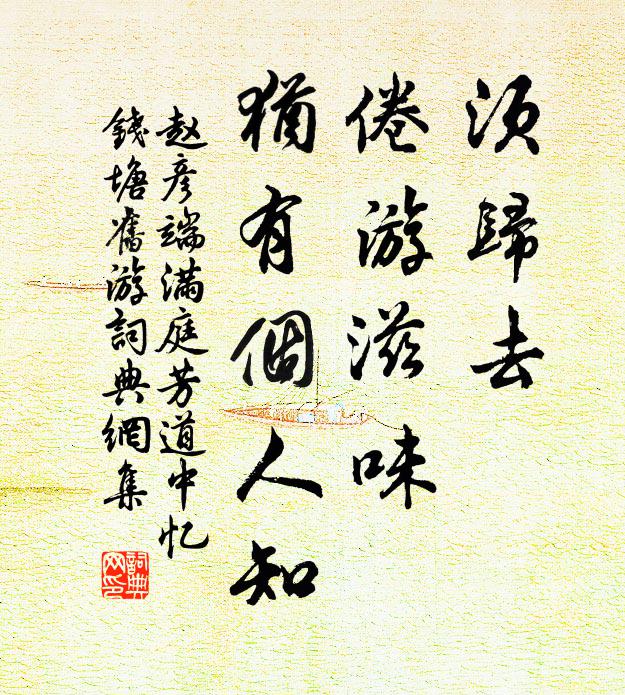 须歸去
倦游滋味
猶有個人知
赵彦端满庭芳道中忆
錢塘舊游詞典網集
詞典
网印